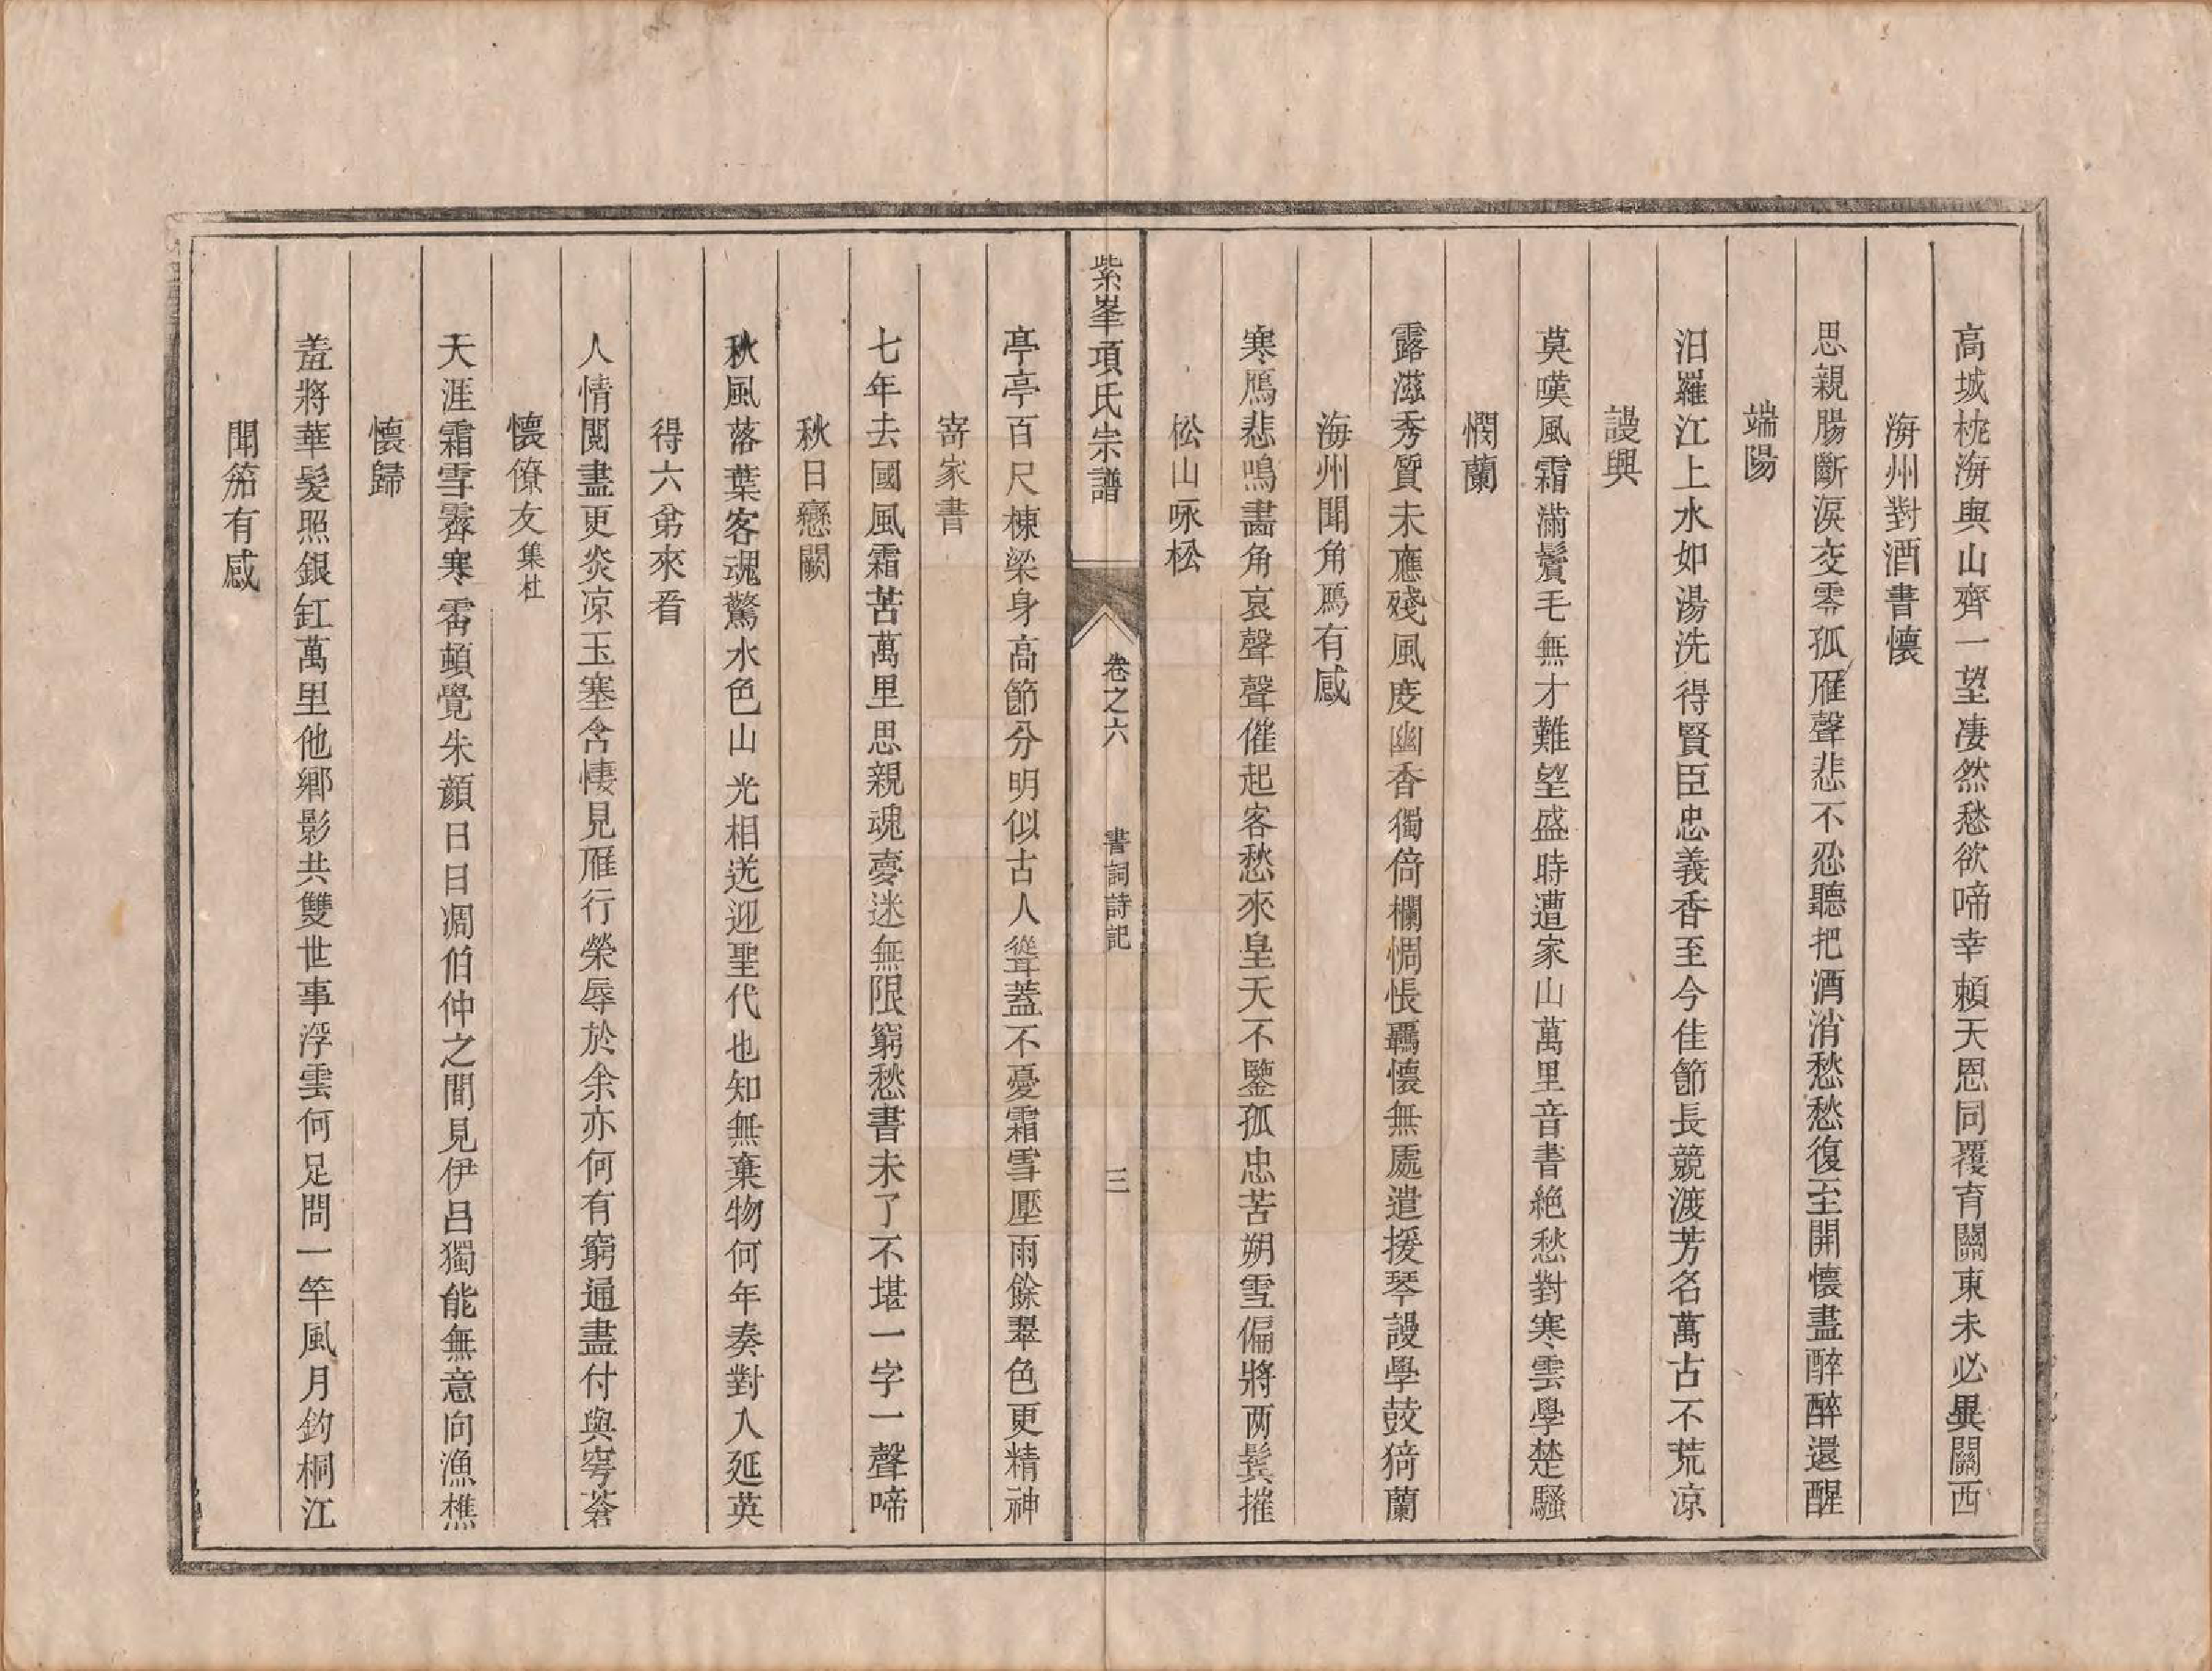 高城桃海與山齊一望凄然愁欲啼幸賴天恩同覆育關東未必異關西
海州對酒書懷
思親腸斷淚交零孤雁聲悲不忍聽把酒消愁愁復至開懷盡醉醉還醒
端陽
汨羅江上水如湯洗得賢臣忠義香至今佳節長競渡芳名萬古不荒凉
謾興
莫嘆風霜滿鬢毛無才難望盛時遭家山萬里音書絶愁對寒雲學楚騷
憫蘭
露滋秀質未應殘風度幽香獨倚欄惆悵羈懷無處遣援琴謾學鼓猗蘭
海州聞角鴈有感
寒鴈悲鳴畵角哀聲聲催起客愁來皇天不鑒孤忠苦朔雪偏將两鬂摧
松山咏松
紫峯項氏宗譜
卷之六
書詞詩記
三
亭亭百尺棟梁身高節分明似古人聳蓋不憂霜雪壓雨餘翠色更精神
寄家書
七年去國風霜苦萬里思親魂夢迷無限窮愁書未了不堪一字一聲啼
秋日戀闕
秋風落葉客魂驚水色山光相送迎聖代也知無棄物何年奏對入延英
得六弟來看
人情閱盡更炎凉玉塞含悽見雁行榮辱於余亦何有窮通盡付與穹蒼
懷僚友集杜
天涯霜雪霽寒霄頓覺朱顔日日凋伯仲之間見伊呂獨能無意向漁樵
懷歸
羞將華髮照銀缸萬里他鄉影共雙世事浮雲何足問一竿風月釣桐江
聞笳有感